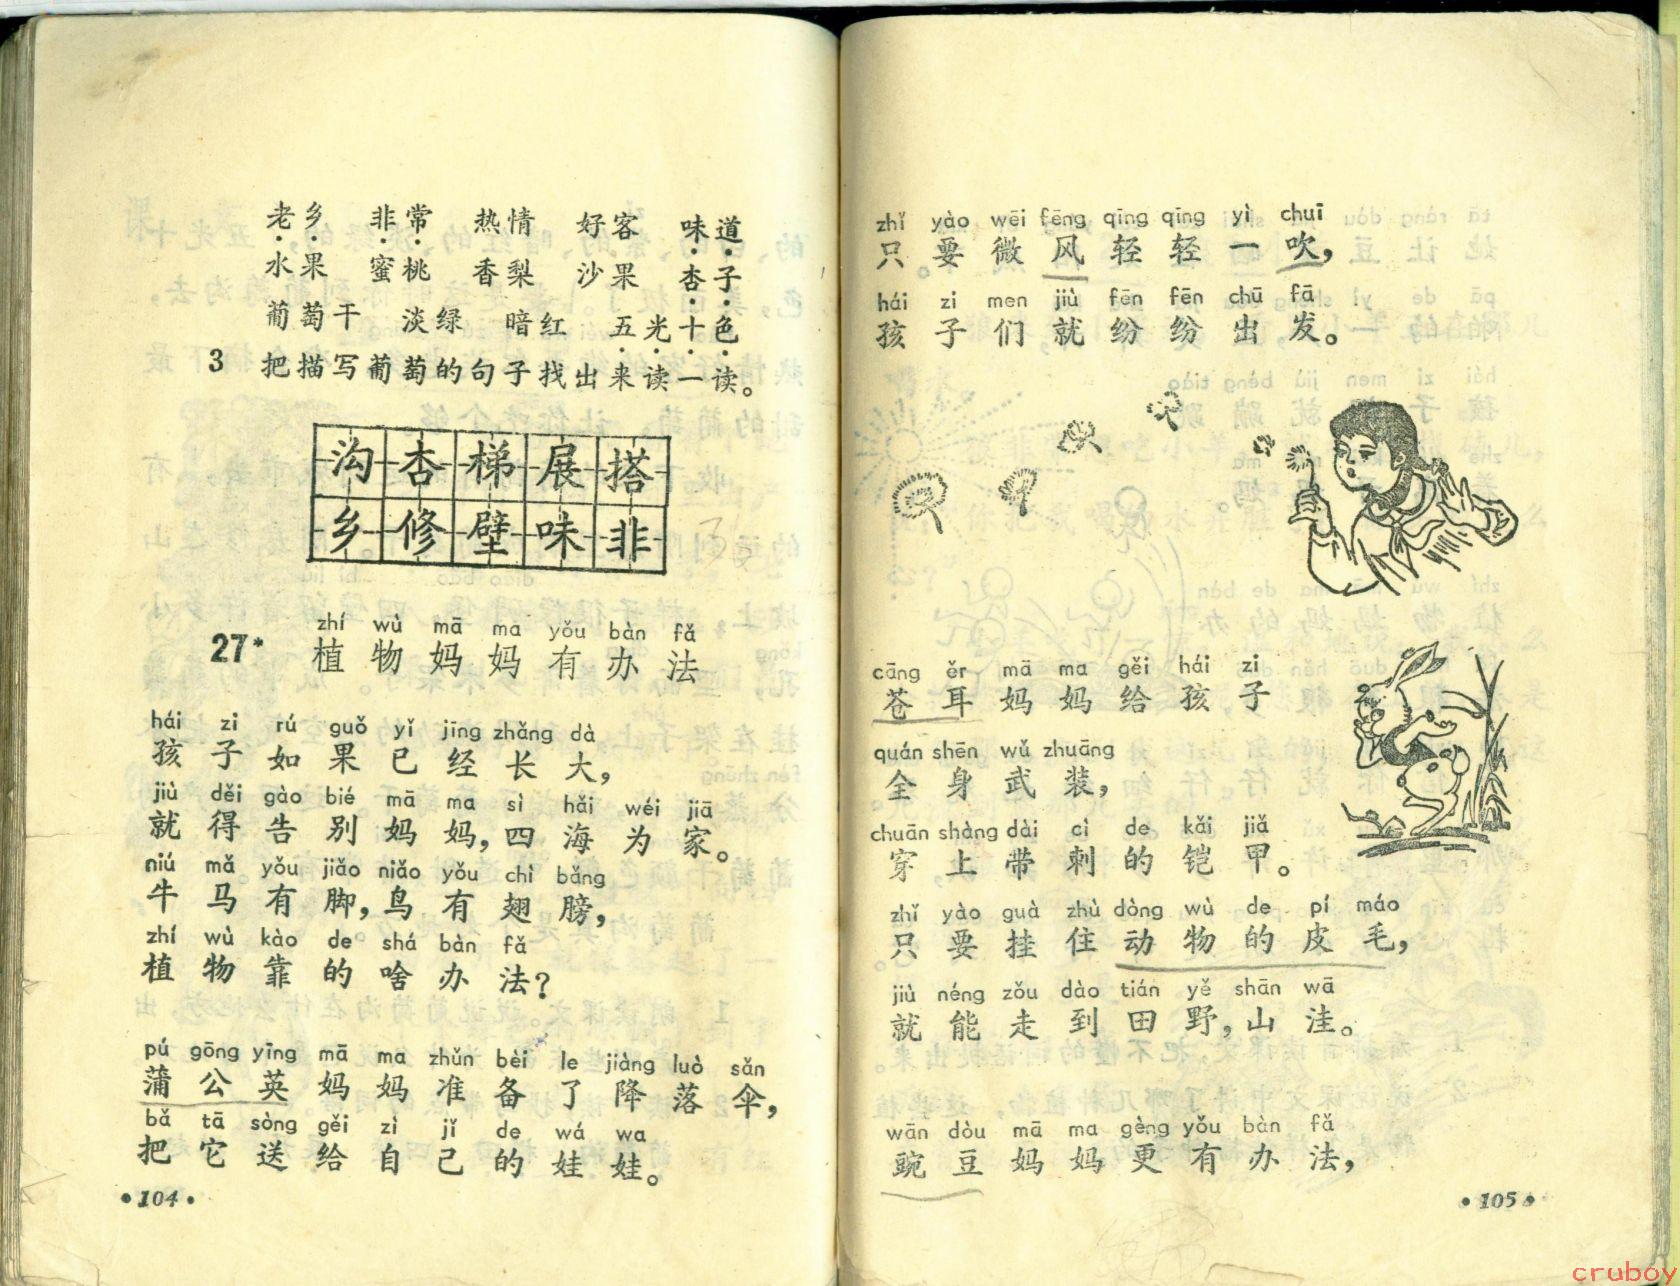 老乡 非常 热情 好客 味道
水果 蜜桃 香梨 沙果 杏子
葡萄干 淡绿 暗红 五光十色
3 把描写葡萄的句子找出来读一读。
沟杏梯展搭
乡修壁味非
zhí wù mā ma yǒu bàn fǎ
27* 植物妈妈有办法
hái zi rú guǒ yǐ jīng zhǎng dà
孩子如果已经长大，
jiù děi gào bié mā ma sì hǎi wéi jiā
就得告别妈妈，四海为家。
niú mǎ yǒu jiǎo niǎo yǒu chì bǎng
牛马有脚，鸟有翅膀，
zhí wù kào de shá bàn fǎ
植物靠的啥办法？
pú gōng yīng mā ma zhǔn bèi le jiàng luò sǎn
蒲公英妈妈准备了降落伞，
bǎ tā sòng gěi zì jǐ de wá wa
把它送给自己的娃娃。
•104•
zhǐ yào wēi fēng qīng qīng yì chuī
只要微风轻轻一吹，
hái zi men jiù fēn fēn chū fā
孩子们就纷纷出发。
cāng ěr mā ma gěi hái zi
苍耳妈妈给孩子
quán shēn wǔ zhuāng
全身武装，
chuān shàng dài cì de kǎi jiǎ
穿上带刺的铠甲。
zhǐ yào guà zhù dòng wù de pí máo
只要挂住动物的皮毛，
jiù néng zǒu dào tián yě shān wā
就能走到田野，山洼。
wān dòu mā ma gèng yǒu bàn fǎ
豌豆妈妈更有办法，
•105•
cruboy